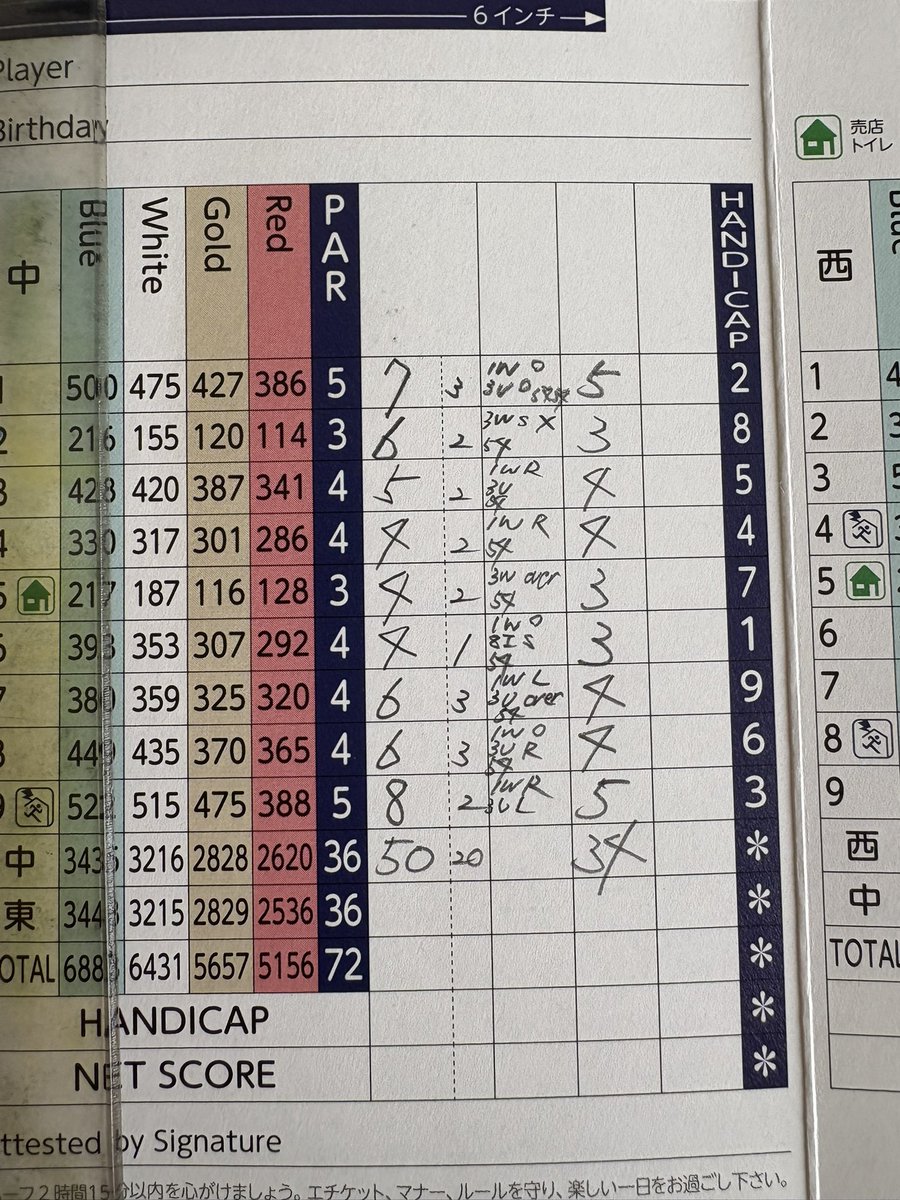 6インチ
Player
Birthday
売店
トイレ
中 Blue White Gold Red PAR HANDICAP 西
1 500 475 427 386 5 7 3 1W O 3U O 5 2 1
2 216 155 120 114 3 6 2 3W S X 54 3 8 2
3 428 420 387 341 4 5 2 1W R 3U 4 5 3
4 330 317 301 286 4 4 2 1W R 54 4 4 4
5 217 187 116 128 3 4 2 3W over 54 3 7 5
6 393 353 307 292 4 4 1 1W O 8I S 54 3 1 6
7 380 359 325 320 4 6 3 1W L 3U over 54 4 9 7
8 440 435 370 365 4 6 3 1W O 3U R 54 4 6 8
9 522 515 475 388 5 8 2 1W R 3U L 5 3 9
中 3435 3216 2828 2620 36 50 20 34 * 西
東 344 3215 2829 2536 36 * 中
TOTAL 688 6431 5657 5156 72 * TOTAL
HANDICAP *
NET SCORE *
ttested by Signature
ーフ2時間15分以内を心がけましょう。エチケット、マナー、ルールを守り、楽しい一日をお過ごし下さい。